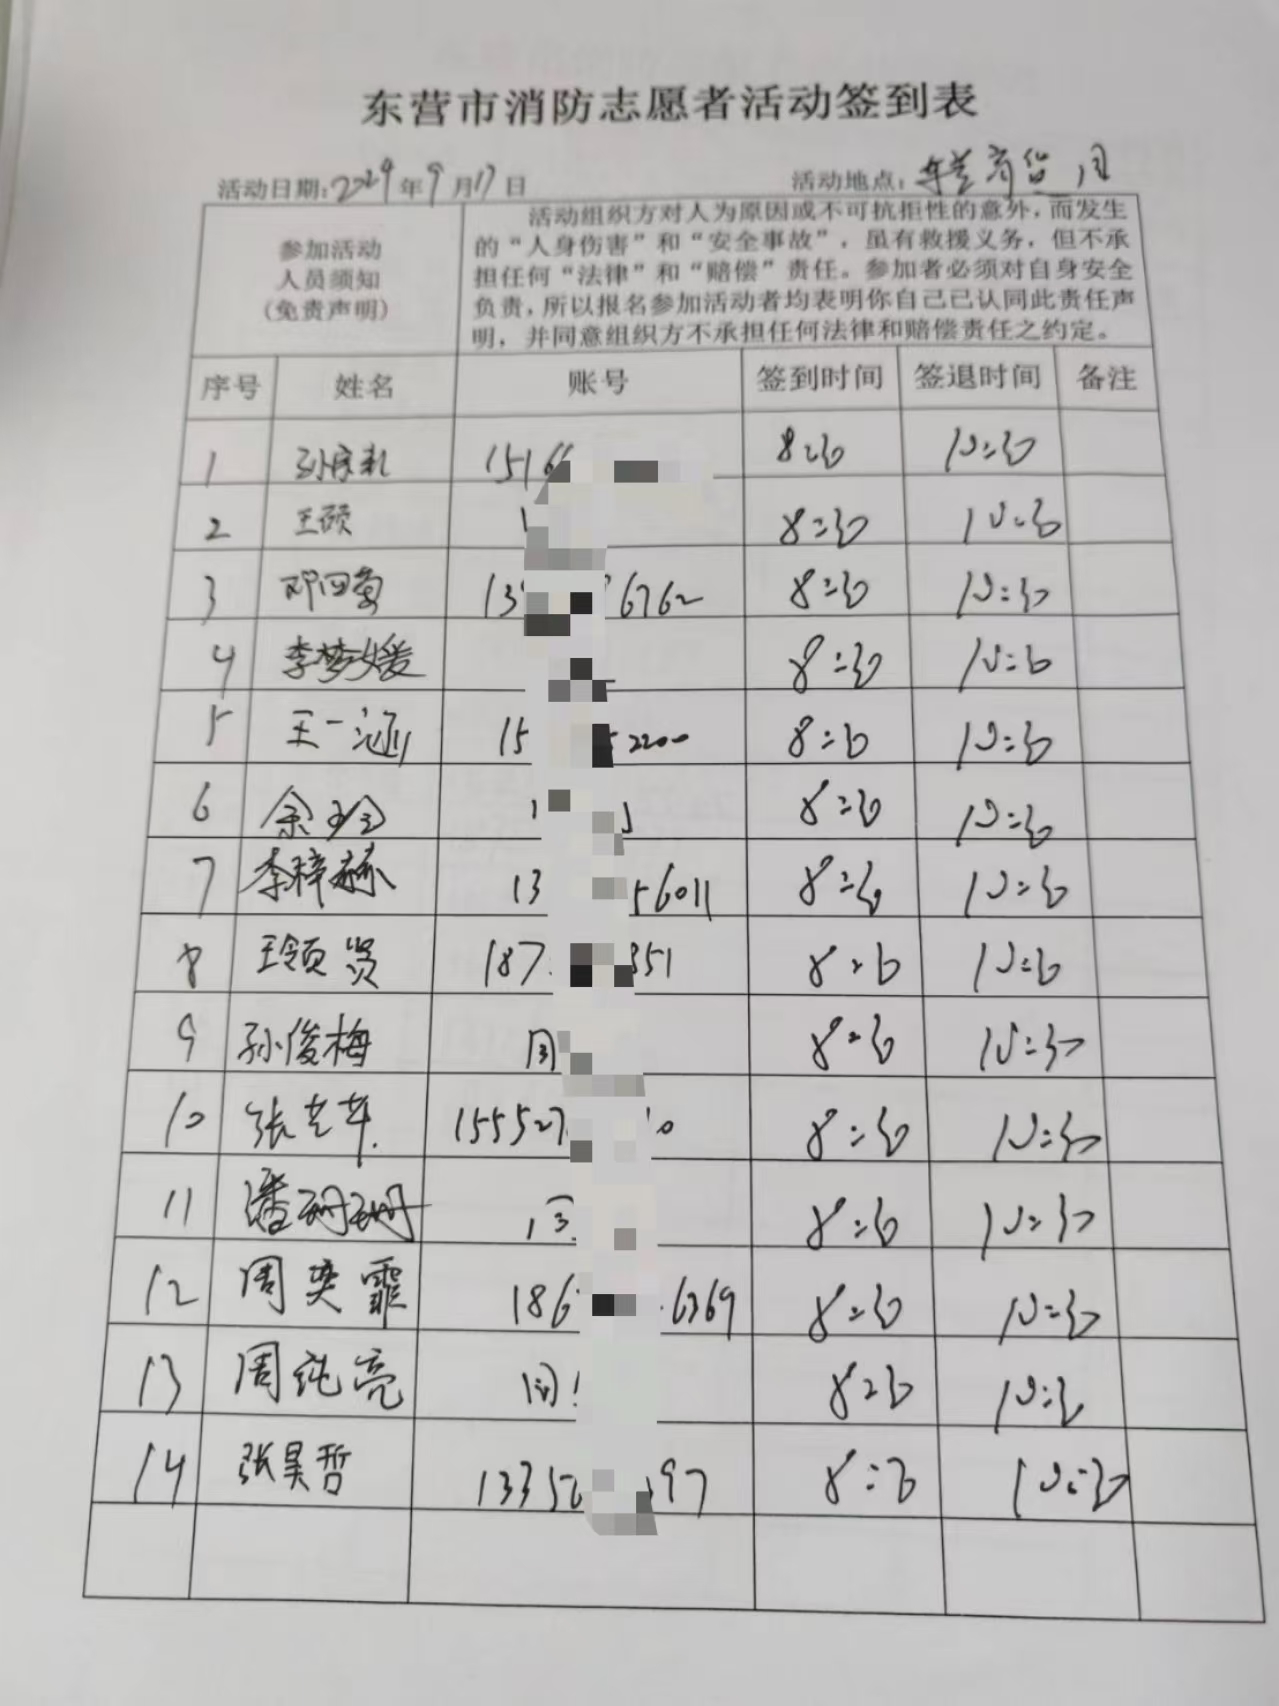 东营市消防志愿者活动签到表
活动日期:2024年9月17日 活动地点:
参加活动
人员须知
(免责声明)
活动组织方对人为原因或不可抗拒性的意外,而发生
的“人身伤害”和“安全事故”,虽有救援义务,但不承
担任何“法律”和“赔偿”责任。参加者必须对自身安全
负责,所以报名参加活动者均表明你自己已认同此责任声
明,并同意组织方不承担任何法律和赔偿责任之约定。
序号 姓名 账号 签到时间 签退时间 备注
1 1516 8:30 10:30
2 王颐 1 8:30 10:30
3 邓四菊 13 6762 8:30 10:30
4 李梦媛 8:30 10:30
5 王一涵 15 52200 8:30 10:30
6 余玲 1 8:30 10:30
7 李梓赫 13 56011 8:30 10:30
8 王领贤 187 351 8:30 10:30
9 孙俊梅 同 8:30 10:30
10 张艺苹 155527 0 8:30 10:30
11 潘珊珊 13 8:30 10:30
12 周奕霏 186 6369 8:30 10:30
13 周纯亮 同 8:30 10:30
14 张昊哲 13356 97 8:30 10:30